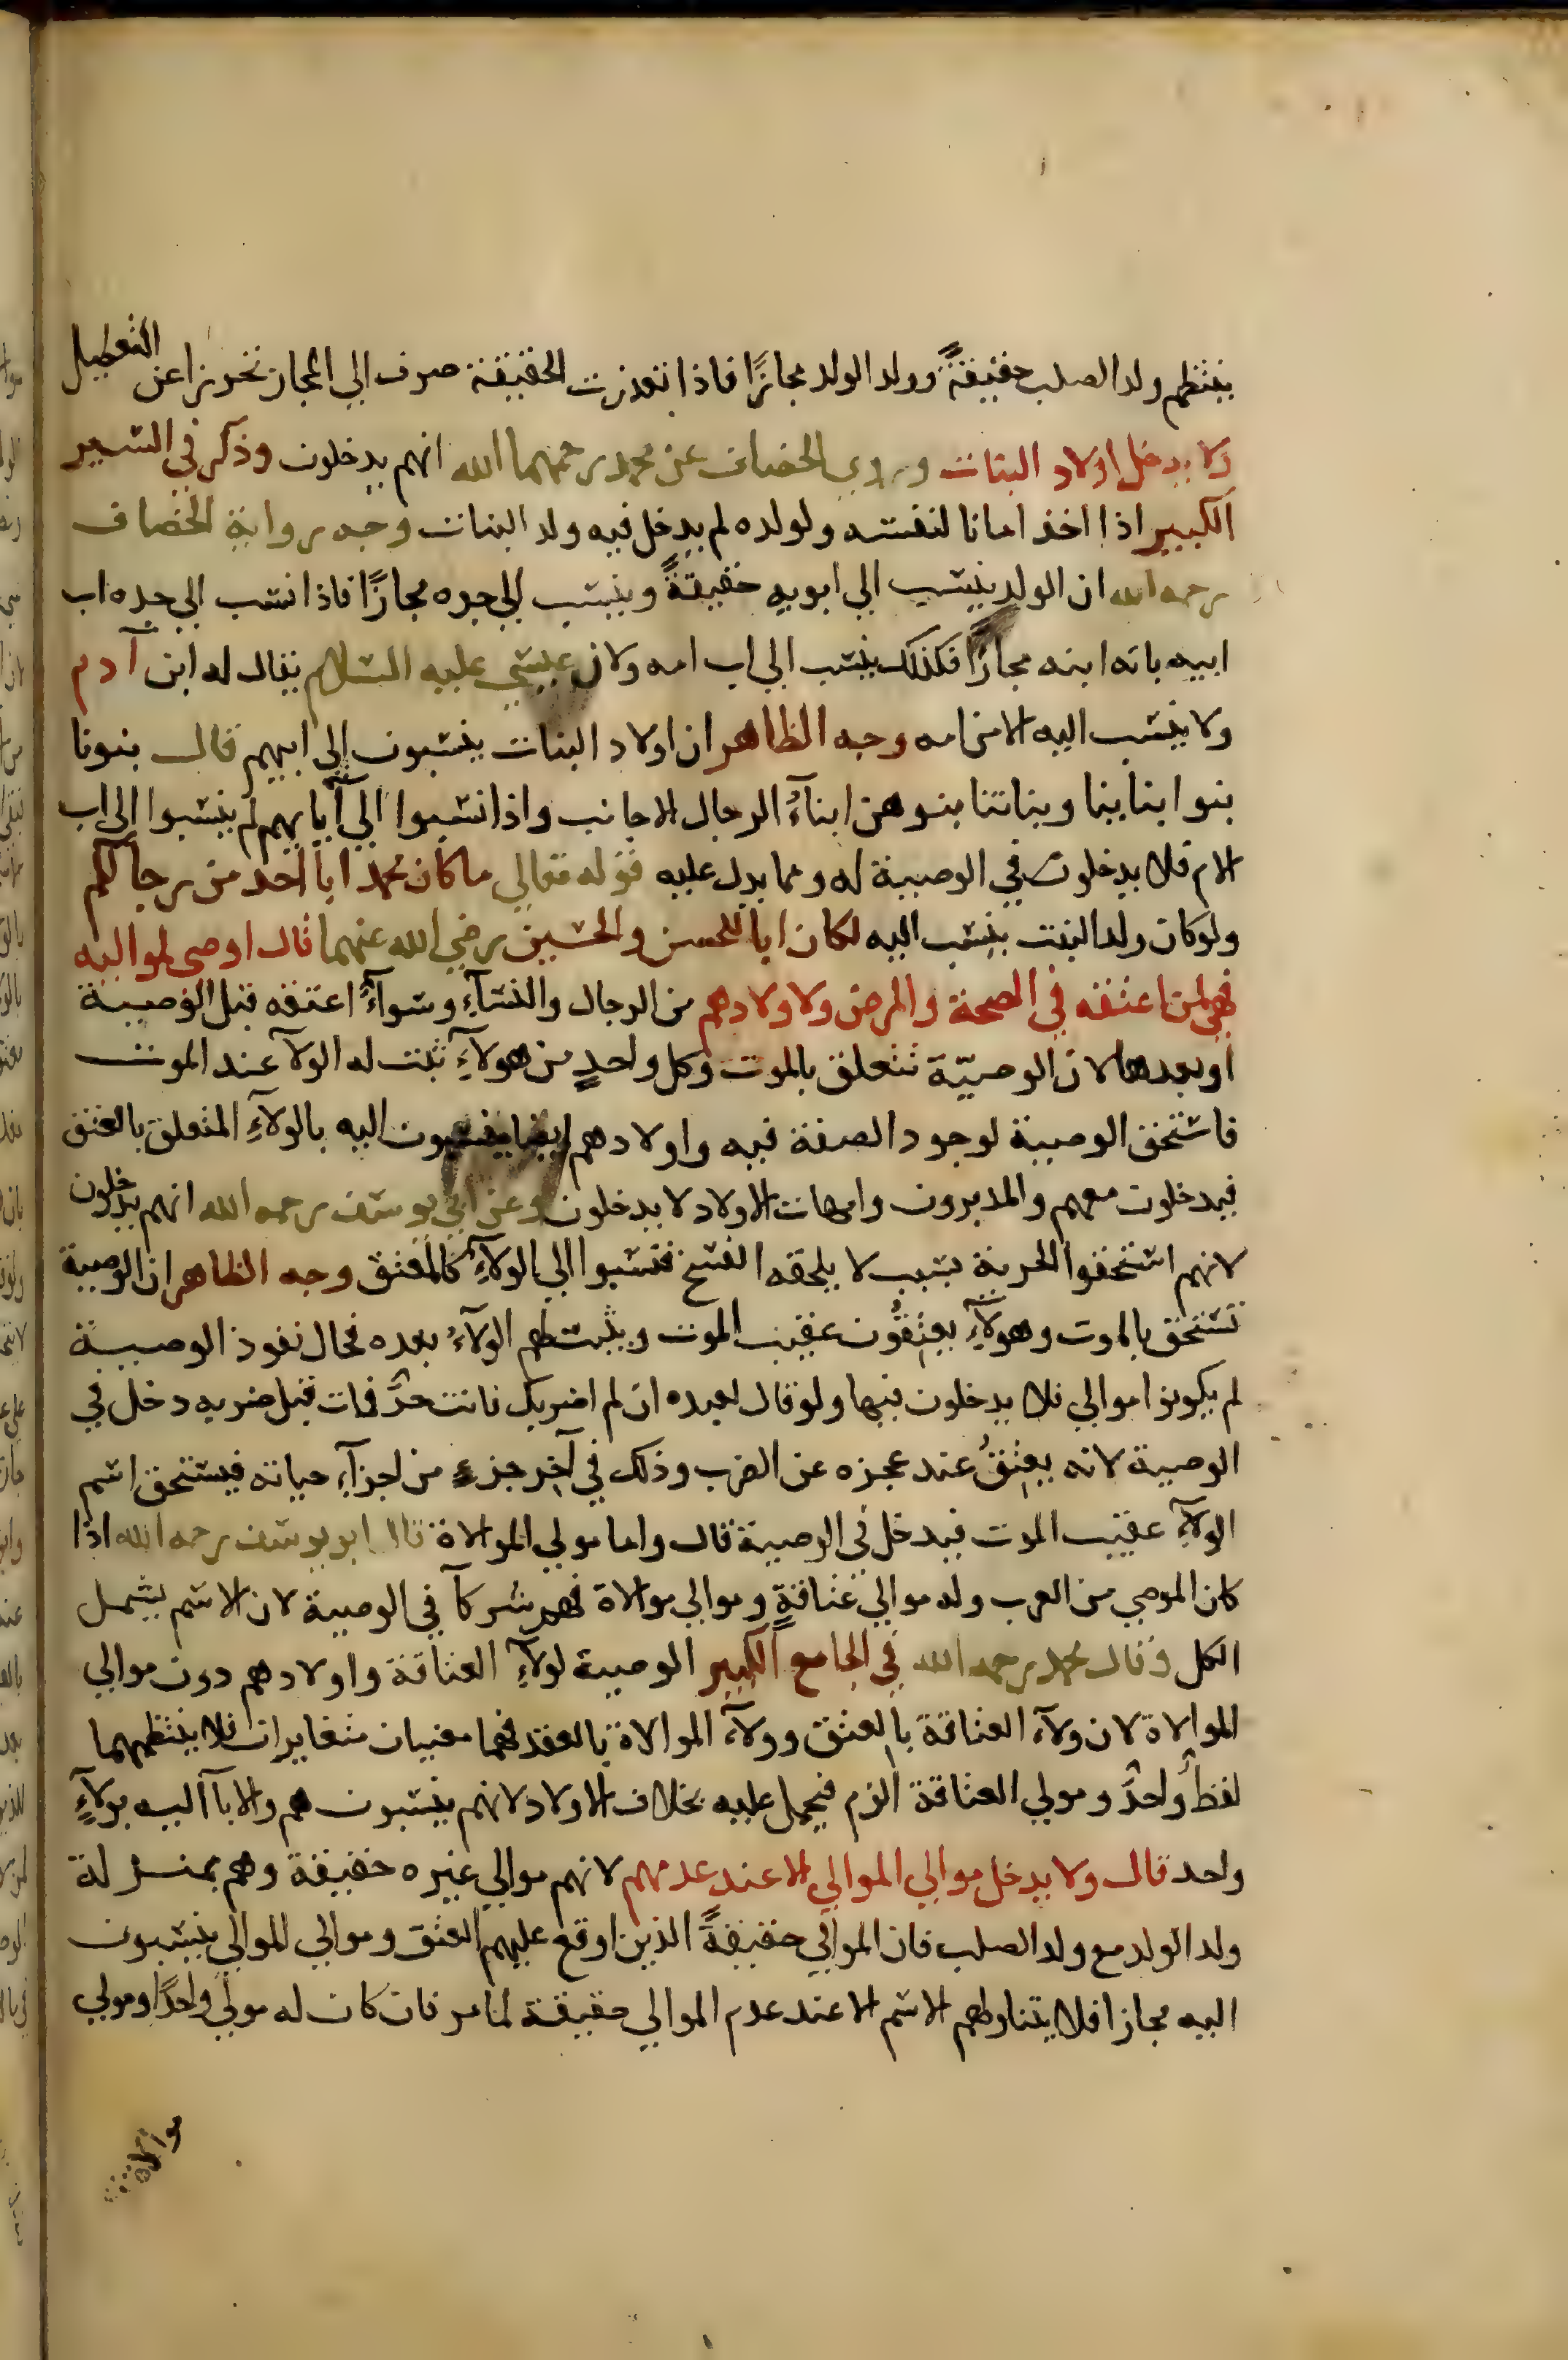 ينتظم ولد الصلب حقيقةً وولد الولد مجازًا فاذا تعذرت الحقيقة صرف الي المجاز تحرزا عن التعطيل
ولا يدخل اولاد البنات وروي الخصاف عن محمد رحمهما الله انهم يدخلون وذكر في السير
الكبير اذا اخذ امانا لنفسه ولولده لم يدخل فيه ولد البنات وجه رواية الخصاف
رحمه الله ان الولد ينسب الي ابويه حقيقةً وينسب الي جده مجازًا فاذا نسب الي جده اب
ابيه بانه ابنه مجازًا فكذلك ينسب الي اب امه ولان عيسي عليه السلام يقال له ابن آدم
ولا ينسب اليه الا من امه وجه الظاهر ان اولاد البنات ينسبون الي ابيهم قال بنونا
بنوا بناينا وبناتنا بنوهن ابناءُ الرجال الاجانب واذا نسبوا الي آبايهم لم ينسبوا الي اب
الام فلا يدخلون في الوصية له ومما يدل عليه قوله تعالي ما كان محمد ابا احد من رجالكم
ولو كان ولد البنت ينسب اليه لكان ابا للحسن والحسين رضي الله عنهما قال اوصى لمواليه
فهي لمن اعتقه في الصحة والمرض ولاولادهم من الرجال والنسآءِ وسوآءٌ اعتقه قبل الوصية
او بعدها لان الوصيّة تتعلق بالموت وكل واحدٍ من هولآءِ ثبت له الولآ عند الموت
فاستحق الوصية لوجود الصفة فيه واولادهم ايضا ينسبون اليه بالولآءِ المتعلق بالعتق
فيدخلون معهم والمدبرون وامهات الاولاد لا يدخلون وعن ابي يوسف رحمه الله انهم يدخلون
لانهم استحقوا الحرية بسبب لا يلحقه الفسخ فنسبوا الي الولآءِ كالمعتق وجه الظاهر ان الوصية
تستحق بالموت وهولآءِ يعتقُون عقيب الموت ويثبت لهم الولآءُ بعده فحال نفوذ الوصية
لم يكونوا موالي فلا يدخلون فيها ولو قال لعبده ان لم اضربك فانت حرٌ فمات قبل ضربه دخل في
الوصية لانه يعتقُ عند عجزه عن الضرب وذلك في آخر جزءٍ من اجزآءِ حياته فيستحق اسم
الولآءِ عقيب الموت فيدخل في الوصية قال واما مولي الموالاة قال ابو يوسف رحمه الله اذا
كان الموصي من العرب وله موالي عتاقةٍ وموالي موالاة فهم شركآ في الوصية لان الاسم يشمل
الكل وقال محمد رحمه الله في الجامع الكبير الوصية لولآءِ العتاقة واولادهم دون موالي
الموالاة لان ولآءَ العتاقة بالعتق وولآءَ الموالاة بالعقد فهما معنيان متغايران فلا ينتظمهما
لفظٌ واحدٌ ومولي العتاقة الزم فيحمل عليه بخلاف الاولاد لانهم ينسبون هم والابآ اليه بولآءٍ
واحد قال ولا يدخل موالي الموالي الا عند عدمهم لانهم موالي غيره حقيقة وهم بمنزلة
ولد الولد مع ولد الصلب فان الموالي حقيقةً الذين اوقع عليهم العتق وموالي الموالي ينسبون
اليه مجازا فلا يتناولهم الاسم الا عند عدم الموالي حقيقة لما مر فان كان له مولي واحدًا ومولي
موالاة